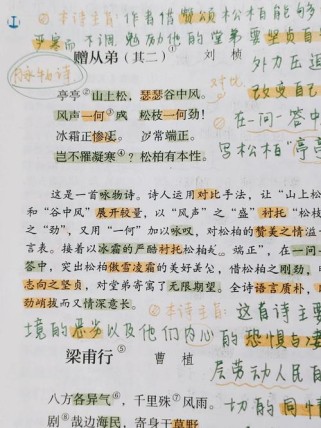 ② 本诗主旨：作者借赞颂松柏能够
严寒而不凋，勉励他的堂弟要坚贞自
赠从弟（其二）① 刘桢
外力压迫
咏物诗
改变自己
亭亭②山上松，瑟瑟谷中风。
对比
风声一何③盛 松枝一何劲！
② 在一问一答中
冰霜正惨凄 岁常端正。
写松柏“亭亭
岂不罹凝寒④？松柏有本性。
这是一首咏物诗。诗人运用对比手法，让“山上松
和“谷中风”展开较量，以“风声”之“盛”衬托“松枝
之“劲”，又用“一何”加以咏叹，对松柏的赞美之情溢
言表。接着以冰霜的严酷衬托松柏 端正”，在一问一
答中，突出松柏傲雪凌霜的美好 借松柏之刚劲，
志向之坚贞，对堂弟寄寓了无限期望。全诗语言质朴，
劲峭拔而又情深意长。
① 本诗主旨：这首诗主要
境的恶劣以及他们内心的恐惧与凄
梁甫行⑤ 曹植
层劳动人民的
八方各异气⑥，千里殊⑦风雨。
切的同情
剧⑧哉边海民，寄身于草野